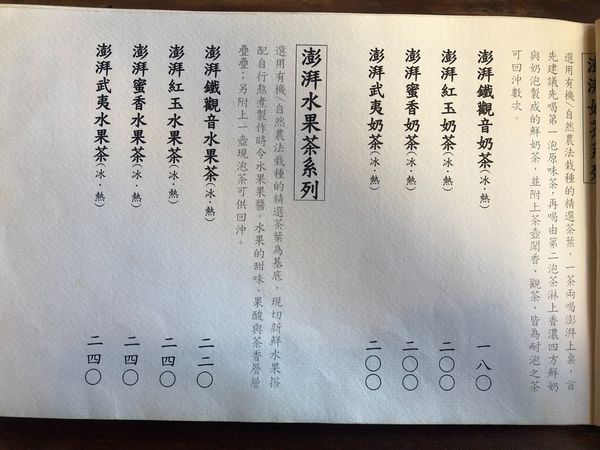 澎湃奶茶系列
選用有機／自然農法栽種的精選茶葉，一茶兩喝澎湃上桌，首
先建議先喝第一泡原味茶，再喝由第二泡茶淋上香濃四方鮮奶
與奶泡製成的鮮奶茶，並附上茶壺聞香、觀茶，皆為耐泡之茶
可回沖數次。
澎湃鐵觀音奶茶(冰．熱) 一八〇
澎湃紅玉奶茶(冰．熱) 二〇〇
澎湃蜜香奶茶(冰．熱) 二〇〇
澎湃武夷奶茶(冰．熱) 二〇〇
澎湃水果茶系列
選用有機／自然農法栽種的精選茶葉為基底，現切新鮮水果搭
配自行熬煮製作時令水果果醬。水果的甜味、果酸與茶香層層
疊疊；另附上一壺現泡茶可供回沖。
澎湃鐵觀音水果茶(冰．熱) 二二〇
澎湃紅玉水果茶(冰．熱) 二四〇
澎湃蜜香水果茶(冰．熱) 二四〇
澎湃武夷水果茶(冰．熱) 二四〇